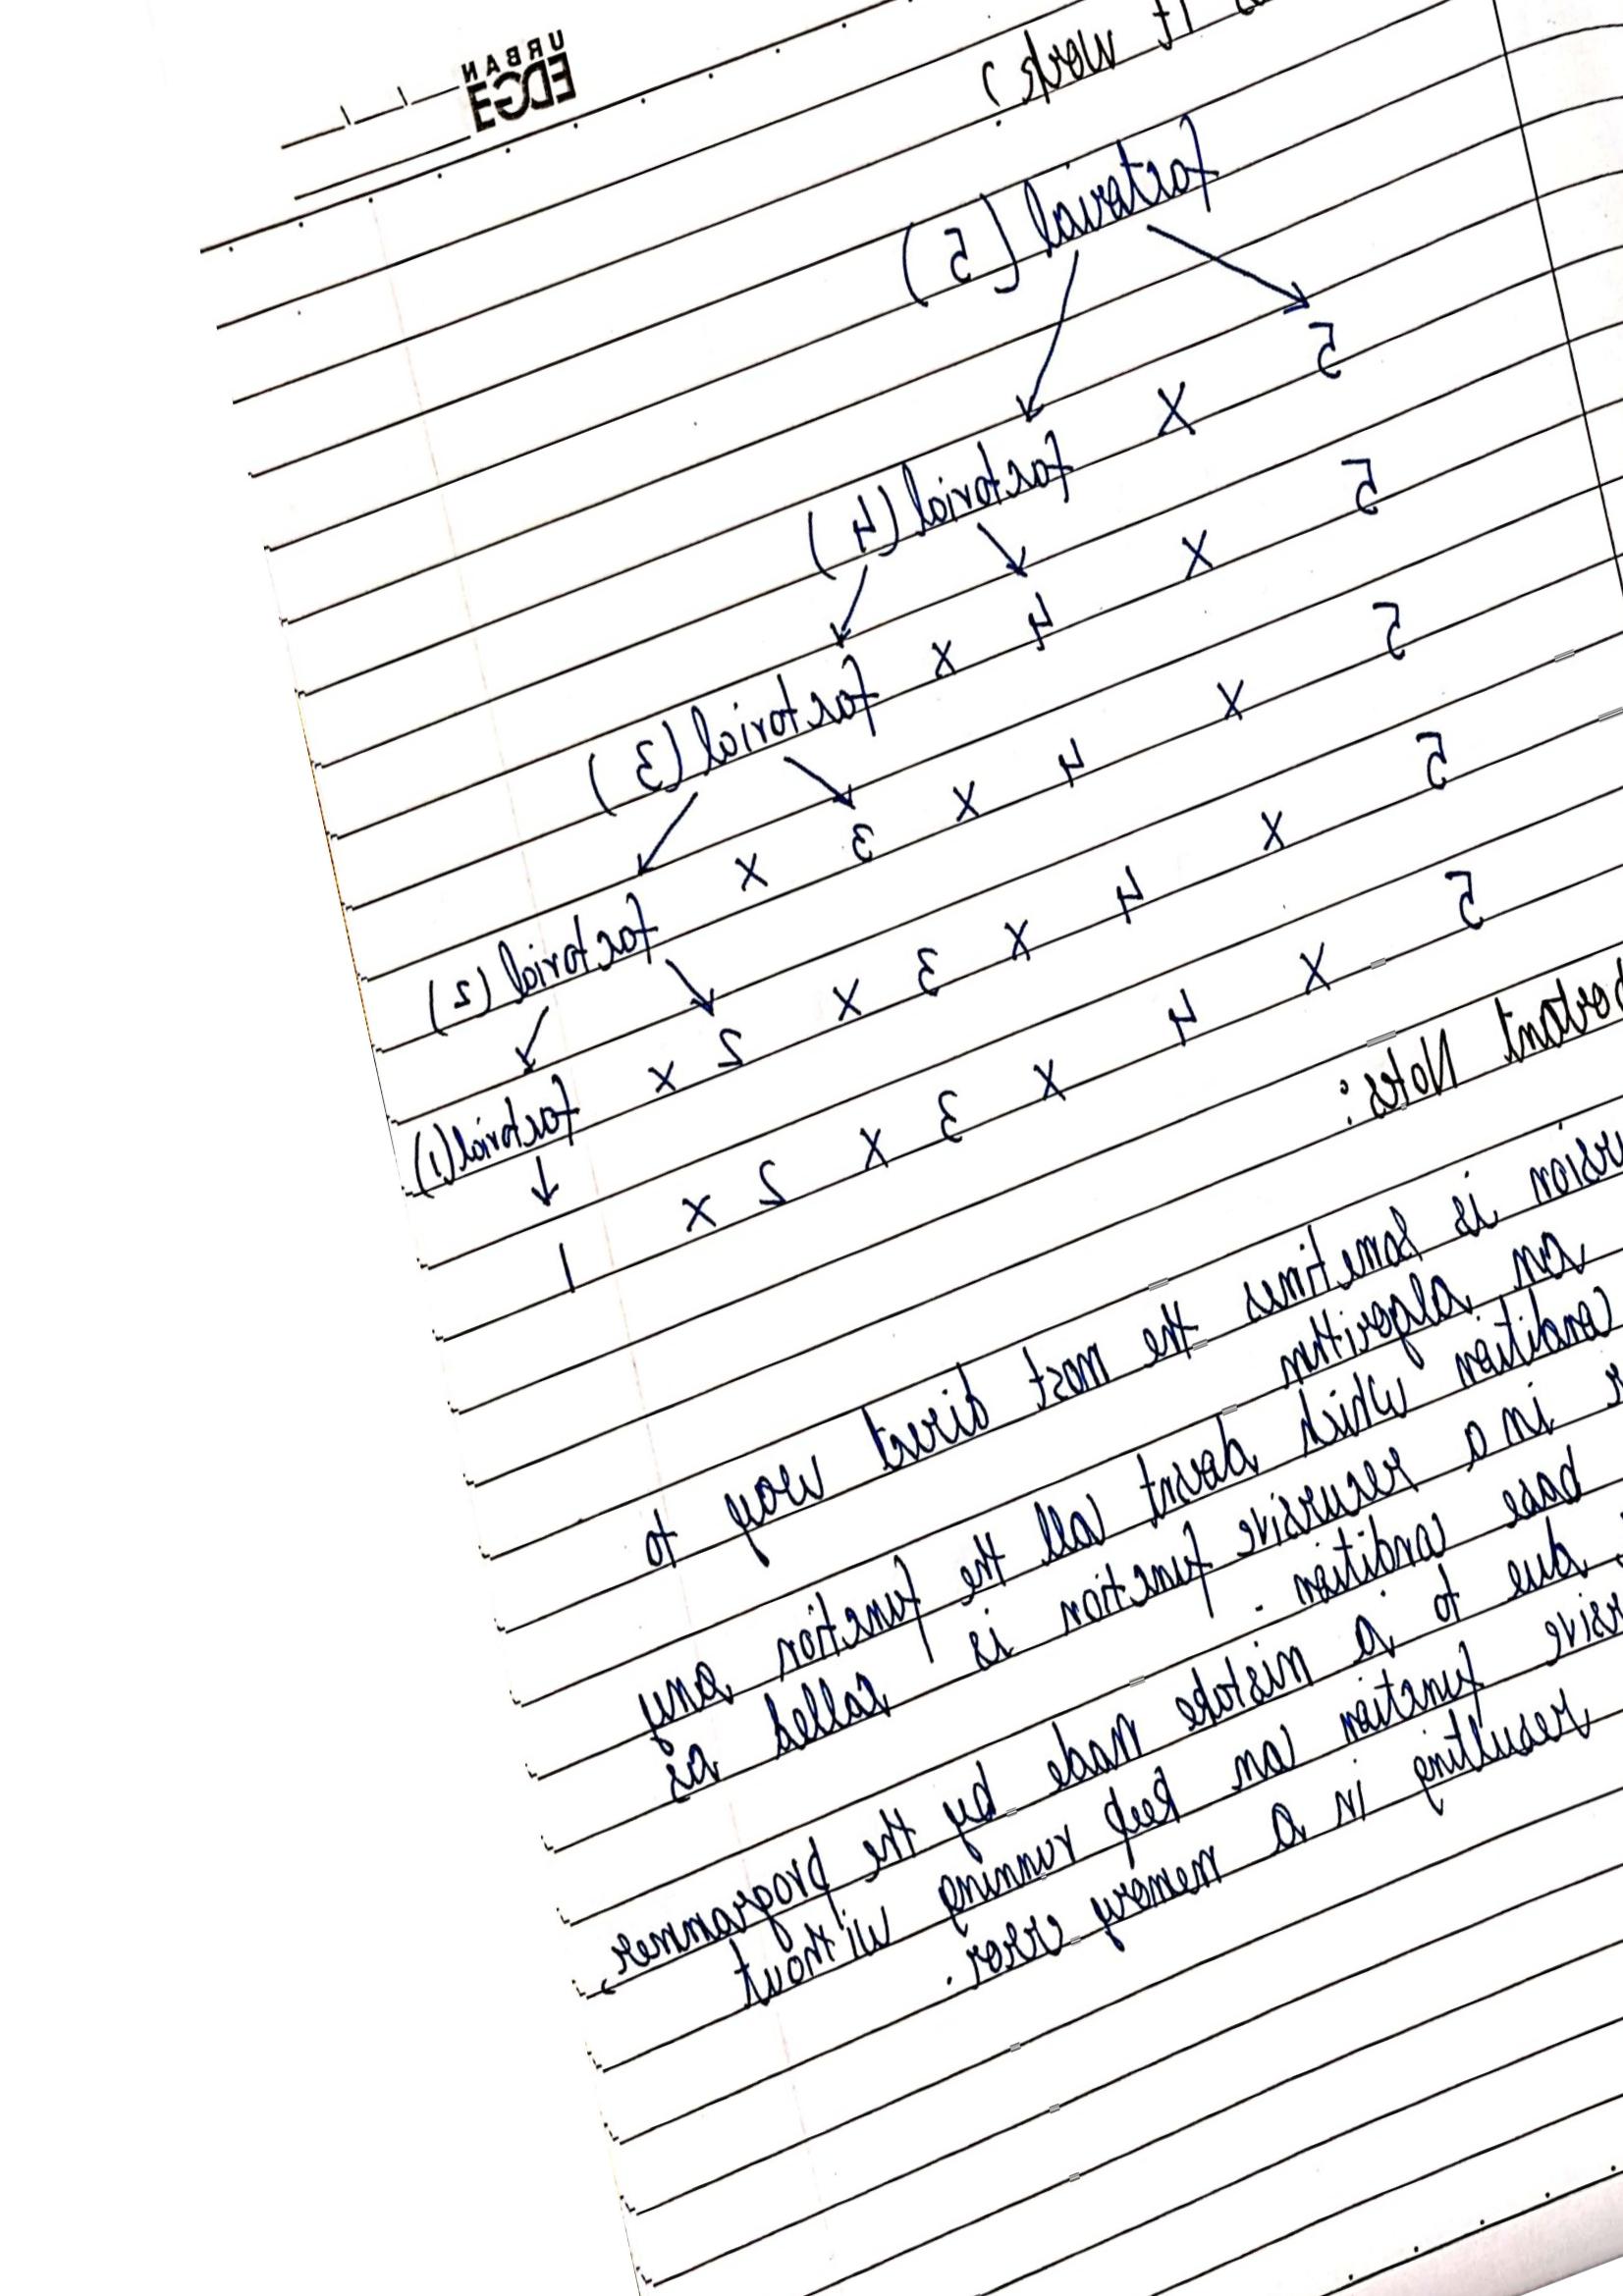 URBAN
EDGE
it works?
fartorial (5)
5 x factorial (4)
5 x 4 x factorial (3)
5 x 4 x 3 x factorial (2)
5 x 4 x 3 x 2 x factorial (1)
5 x 4 x 3 x 2 x 1
portant Notes:
ursion is sometimes the most direct way to
can algorithm
condition which doesnt call the function any
r in a recursive function is called as
base condition.
due to a mistake made by the programmer,
rsive function can keep running without
resulting in a memory error.